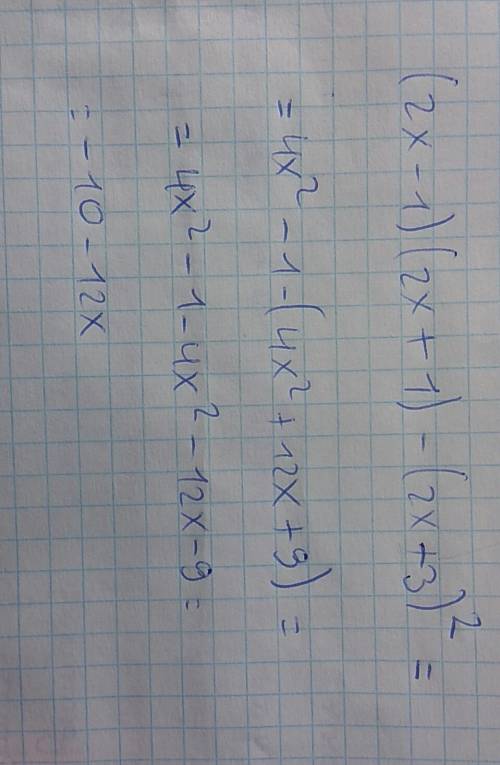 (2x - 1)(2x + 1) - (2x + 3)² =
= 4x² - 1 - (4x² + 12x + 9) =
= 4x² - 1 - 4x² - 12x - 9 =
= -10 - 12x